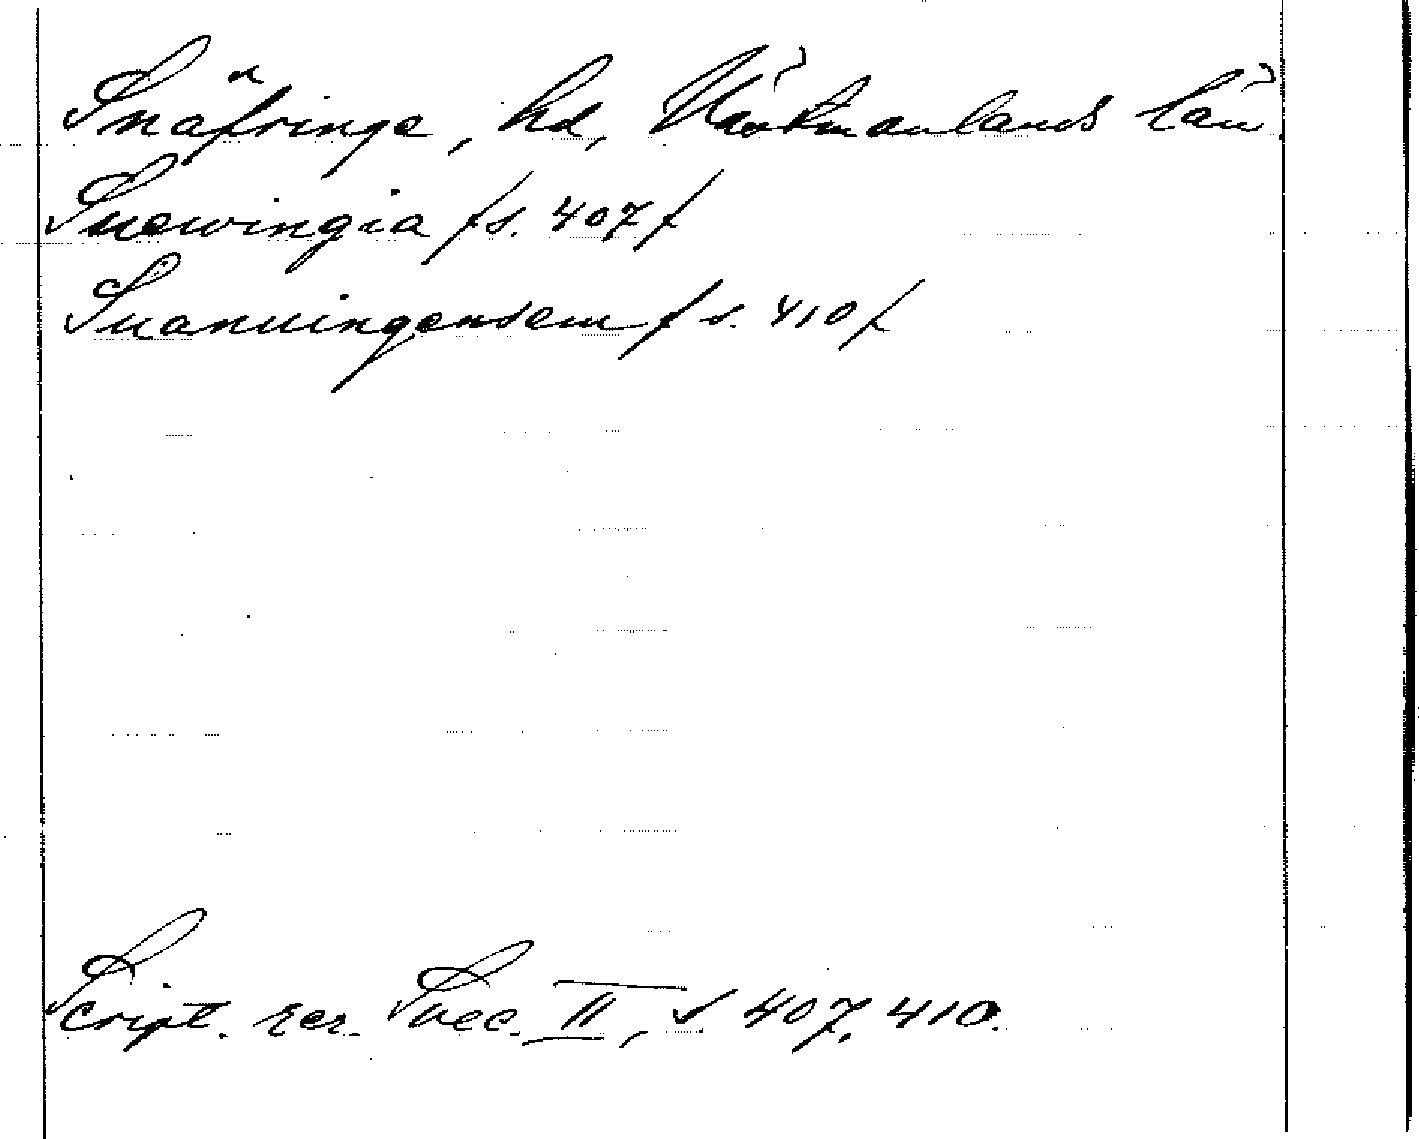 Snäfringe, hd, Västmanlands län.
Snewingia /s. 407/
Snanuingensem / s. 410/
Script. rer. Svec. II, s. 407, 410.